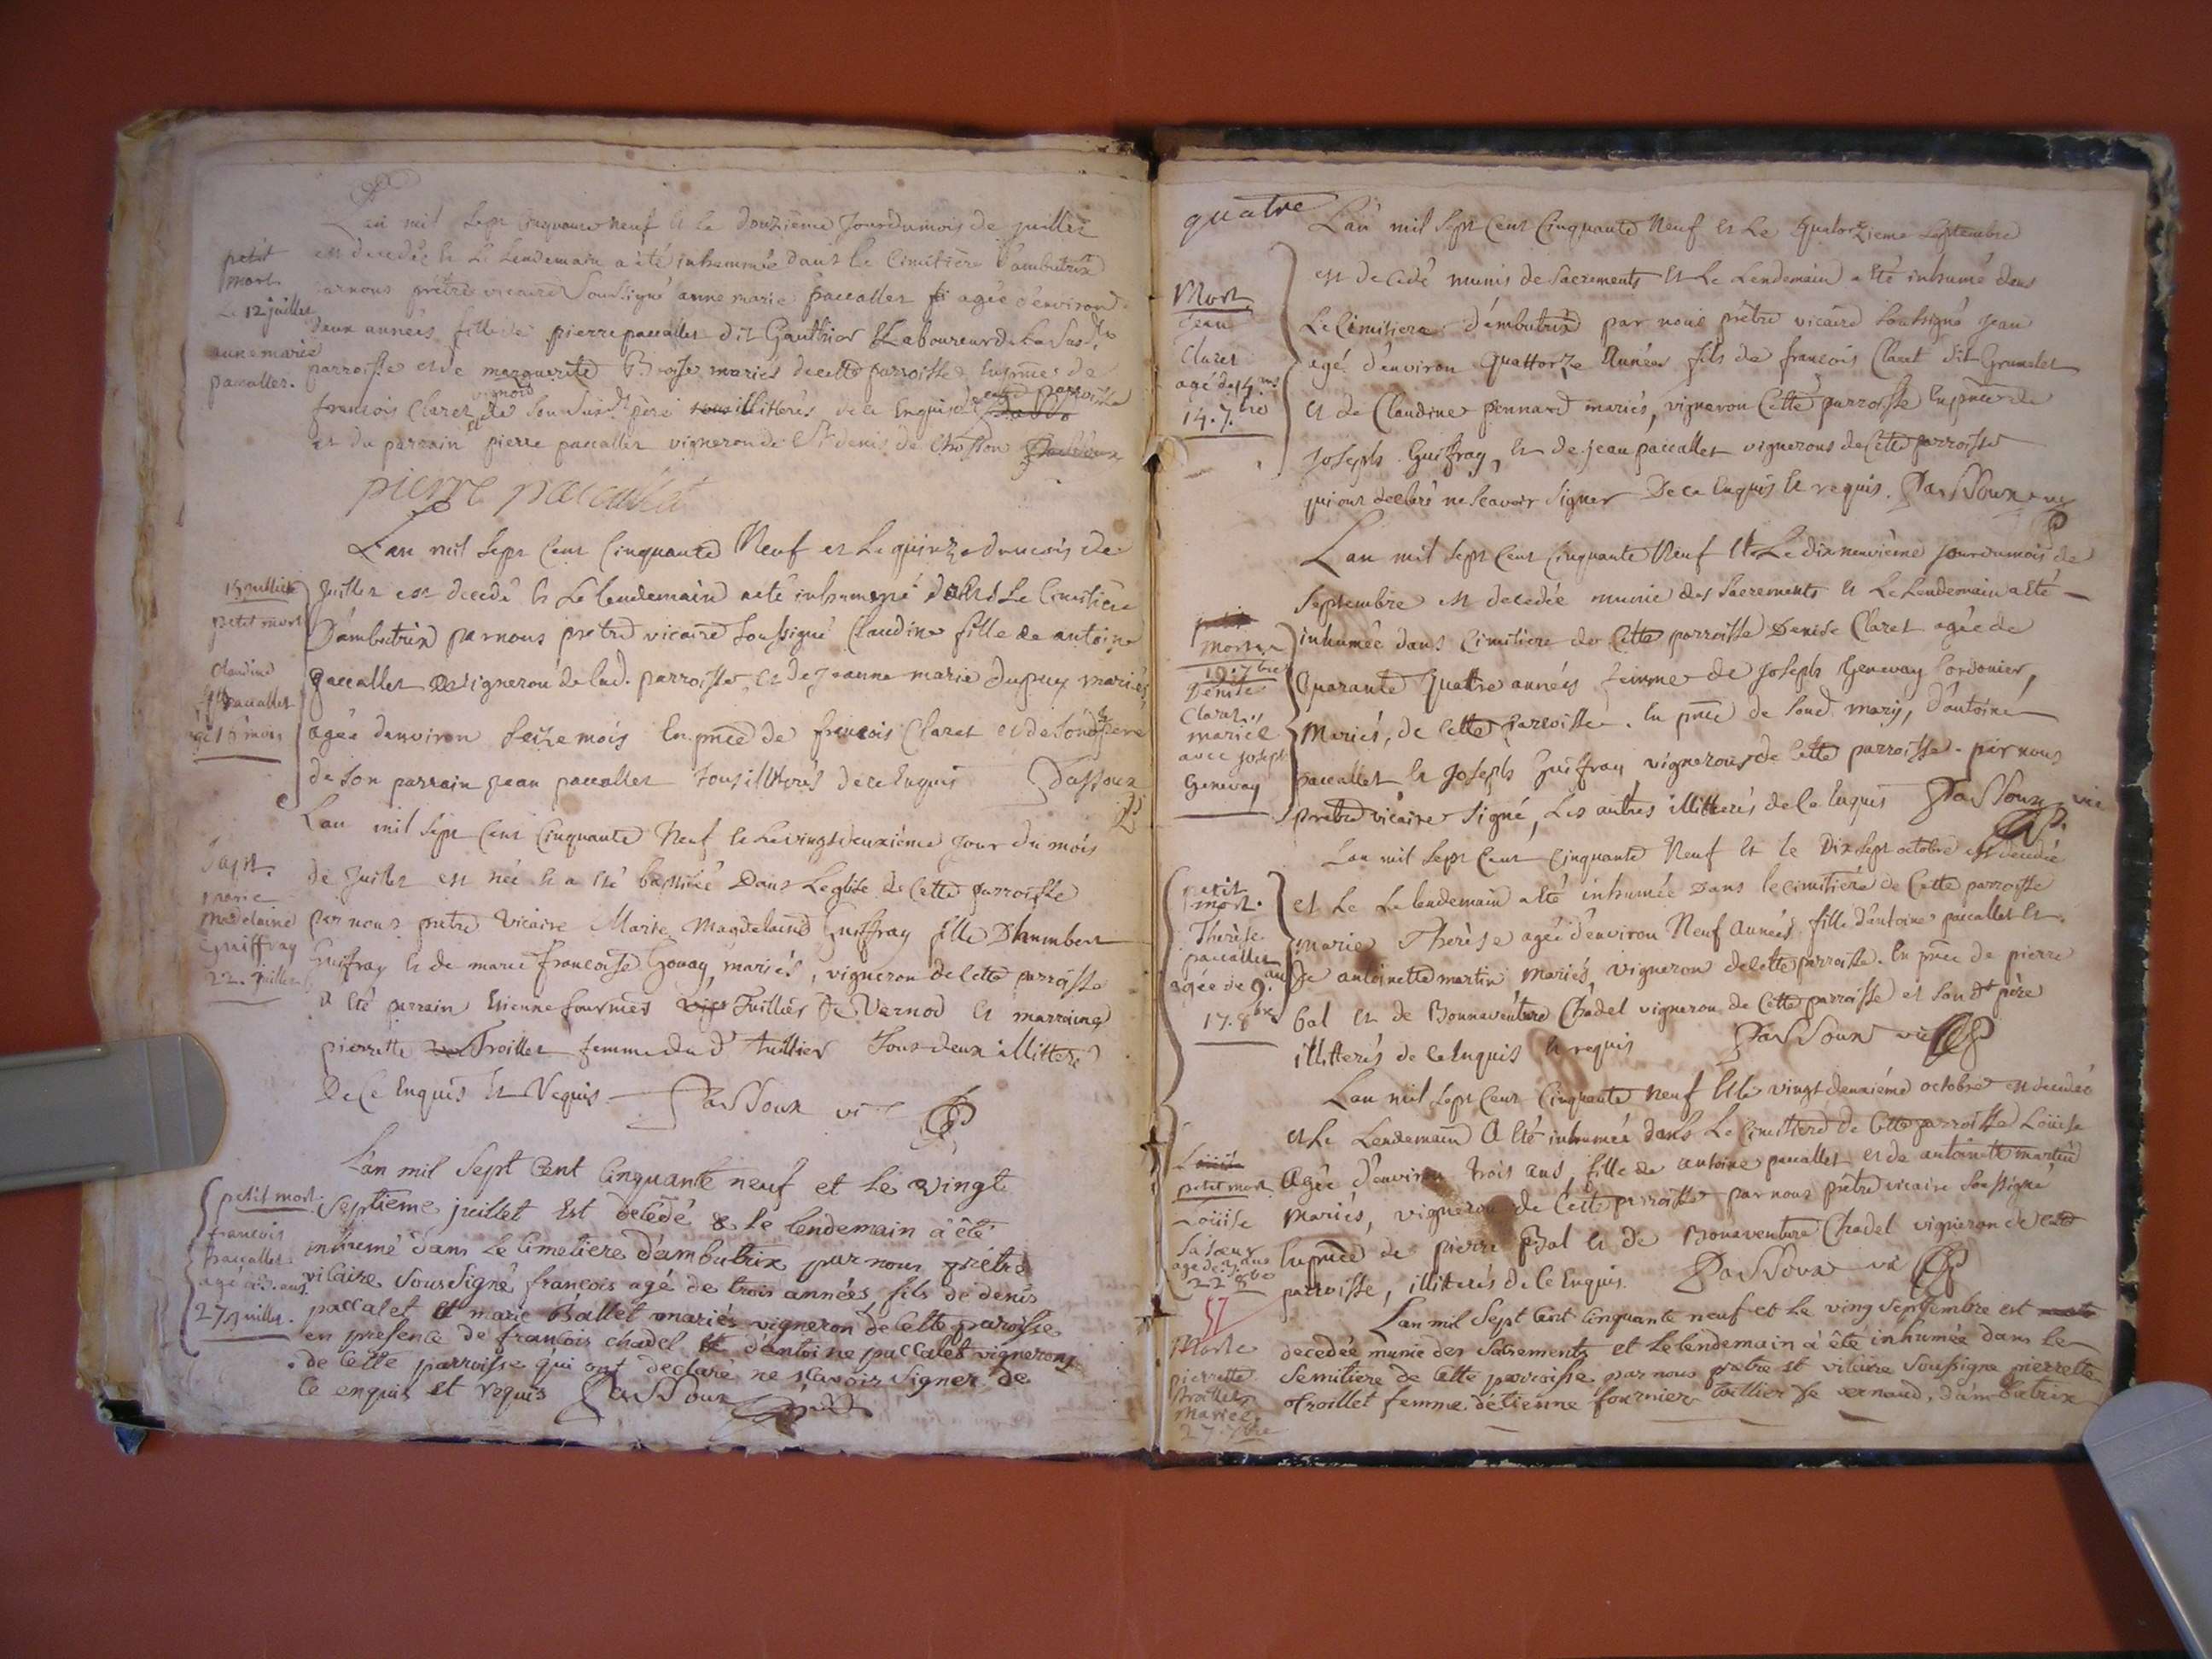 L'an mil sept cinquante neuf et le douzieme jour du mois de juillet
petit
mort
Le 12 juillet
anne marie
paccallet.
est decedée et le lendemain a été inhummée dans le cimitiere d'ambutrix
par nous prêtre vicaire soussigné anne marie paccallet agée d'environ
deux années fille de pierre paccallet dit Gauthier Laboureur de La Susdte
parroisse et de marguerite Brosse mariés de cette parroisse en pnce de
francois Claret vigneron de son susdt pere illitterés de ce Enquis de cette parroisse
et du parrain pierre paccallet vigneron de St denis de Chosson
pierre paccallet
L'an mil sept cent cinquante Neuf et le quinze du mois de
15 juillet
petit mort
Claudine
paccallet
agé 16 mois
juillet est decedé et le lendemain a eté inhummé dans le Cimitiere
D'ambutrix par nous pretre vicaire soussigné Claudine fille de antoine
paccallet vigneron de lad. parroisse et de jeanne marie dupuy mariés,
agée d'environ seize mois en pnce de francois Claret et de sond pere
de son parrain jean paccallet tous illiterés de ce enquis DasSoux
L'an mil sept cent cinquante Neuf et le vingt deuxiéme jour du mois
bapt.
marie
Madelaine
Guiffray
22. juillet
de juillet est née et a été baptisée Dans Leglise de cette parroisse
par nous pretre vicaire Marie Magdelaine Guiffray fille D'humbert
Guifray et de marie francoise Gouay mariés, vigneron de cette parroisse
a été parrain Etienne fournier Tuillier de Vernod et marraine
pierrette Troillet femme dud tuillier Tous deux illitteré
De ce Enquis Et Requis DasSoux vic
L'an mil sept Cent Cinquante neuf et le vingt
petit mort.
francois
paccallet
agé de 3. ans
27 juillet.
septieme juillet Est decedé & le lendemain à êté
inhumé dans le Cimetiere d'ambutrix par nous prêtre
vicaire sousSigné francois agé de trois années fils de denis
paccalet et marie Ballet mariés vigneron de cette paroisse
en presence de francois chadel et d'antoine paccalet vignerons
de cette parroisse qui ont declaré ne scavoir signer de
ce enquis et requis DasSoux
quatre
L'an mil sept Cent Cinquante Neuf et Le quatorzieme septembre
Mort
Jean
Claret
agé de 14 ans
14. 7.bre
est decedé munis de sacrements et Le Lendemain a été inhumé dans
Le Cimitiere d'embutrix par nous prêtre vicaire soussigné jean
agé d'environ quattorze Années fils de francois Claret dit Grumelet
et de Claudine pennard mariés, vigneron Cette parroisse En pnce de
Joseph Guiffray, et de jean paccallet vignerons de Cette parroisse
qui ont declaré ne scavoir signer De ce Enquis et requis. DasSoux vic
L'an mil sept Cent Cinquante Neuf et Le dix neuviéme jour du mois de
morte
19. 7bre
Denise
Claret
mariée
avec joseph
Genevay
septembre est decedée munie des sacrements et Le Lendemain a été
inhumée dans Cimitiere de Cette parroisse Denise Claret agée de
Quarante Quattre années femme de Joseph Genevay Cordonier,
Mariés, de cette paroisse. En pnce de sond mary, d'antoine
paccallet et Joseph Guiffray vignerons de cette parroisse. par nous
pretre vicaire signé, Les autres illitterés de ce enquis DasSoux vic
L'an mil sept Cent Cinquante Neuf et le Dix sept octobre est decedée
petit
mort.
Therèse
paccallet
agée de 9. ans
17. 8bre
et Le Le lendemain a été inhumée Dans le cimitiére de Cette parroisse
marie Therèse agée d'environ Neuf années fille d'antoine paccallet et
De antoinette martin Mariés, vigneron de cette parroisse. En pnce de pierre
bal et de Bonnaventure Chadel vigneron de Cette parroisse et son dt père
illitterés de ce Enquis et requis DasSoux vic
L'an mil sept Cent Cinquante neuf Et le vingt deuxiéme octobre est decedée
petit mort
Loüise
sa sœur
agée de 3 ans
22 8bre
et Le Lendemain A été inhumée dans Le Cimitiere de Cette parroisse Loüise
Agée d'environ trois ans, fille de antoine paccallet et de antoinette martin
Mariés, vigneron de Cette parroisse par nous prêtre vicaire soussigné
En pnce de pierre Bal et de Bonaventure Chadel vigneron de cette
parroisse, illiterés de ce Enquis. DasSoux vic
57
L'an mil Sept Cent Cinquante neuf et le ving septembre est
Morte
pierrette
troillet
Mariée
27. 7bre
decedée munie des Sacrements et le lendemain à êté inhumée dans le
Semitiere de Cette parroisse par nous pretre et vicaire soussigne pierrette
troillet femme d'étienne fournier tuillier de vernaud, d'ambutrix